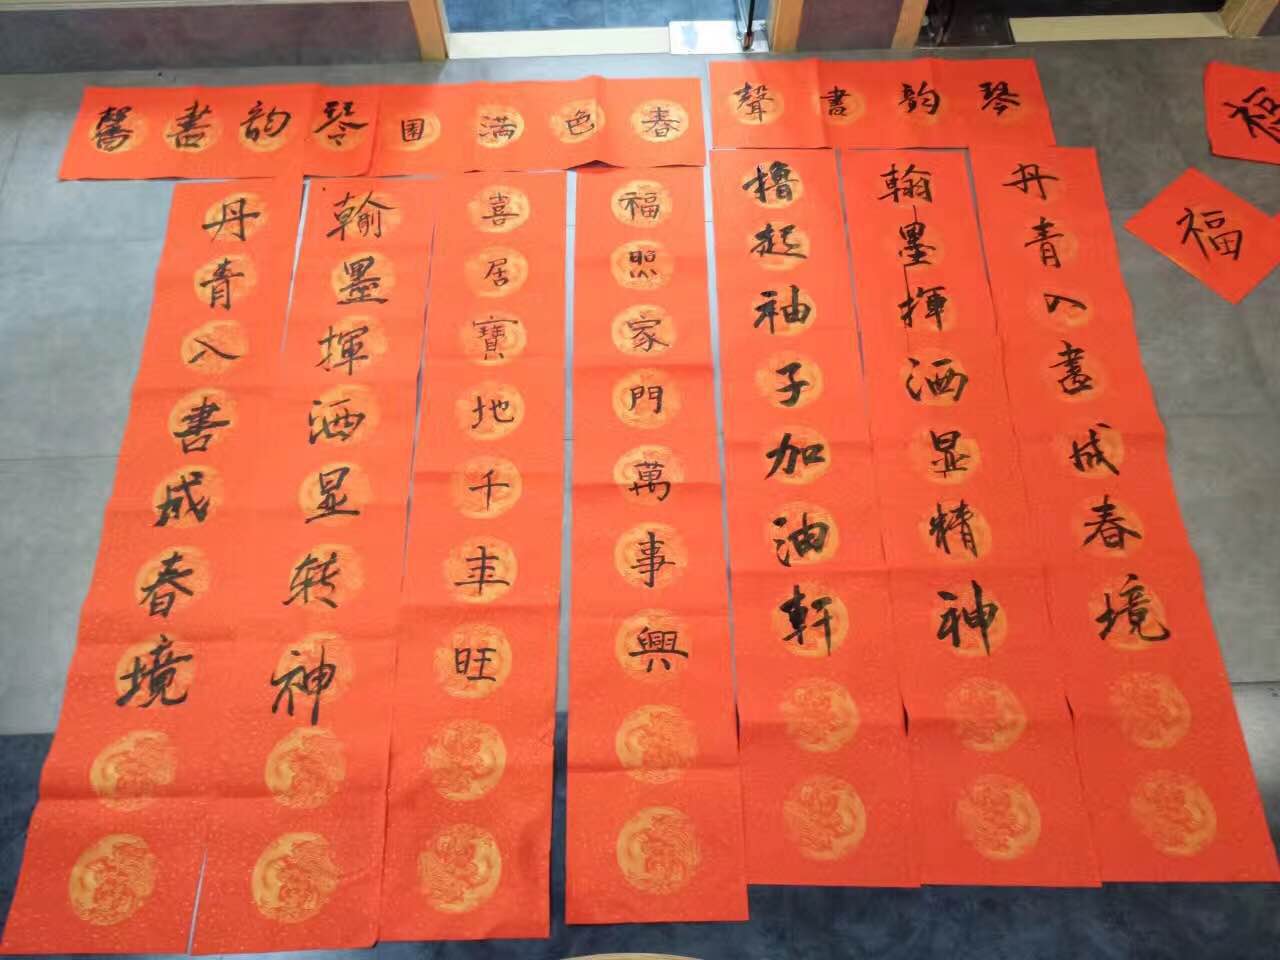 琴韵書聲
春色满園
琴韵書馨
丹青入畫成春境
翰墨揮洒显精神
擼起袖子加油軒
福照家門萬事興
喜居寶地千年旺
翰墨揮洒显转神
丹青入書成春境
福
福